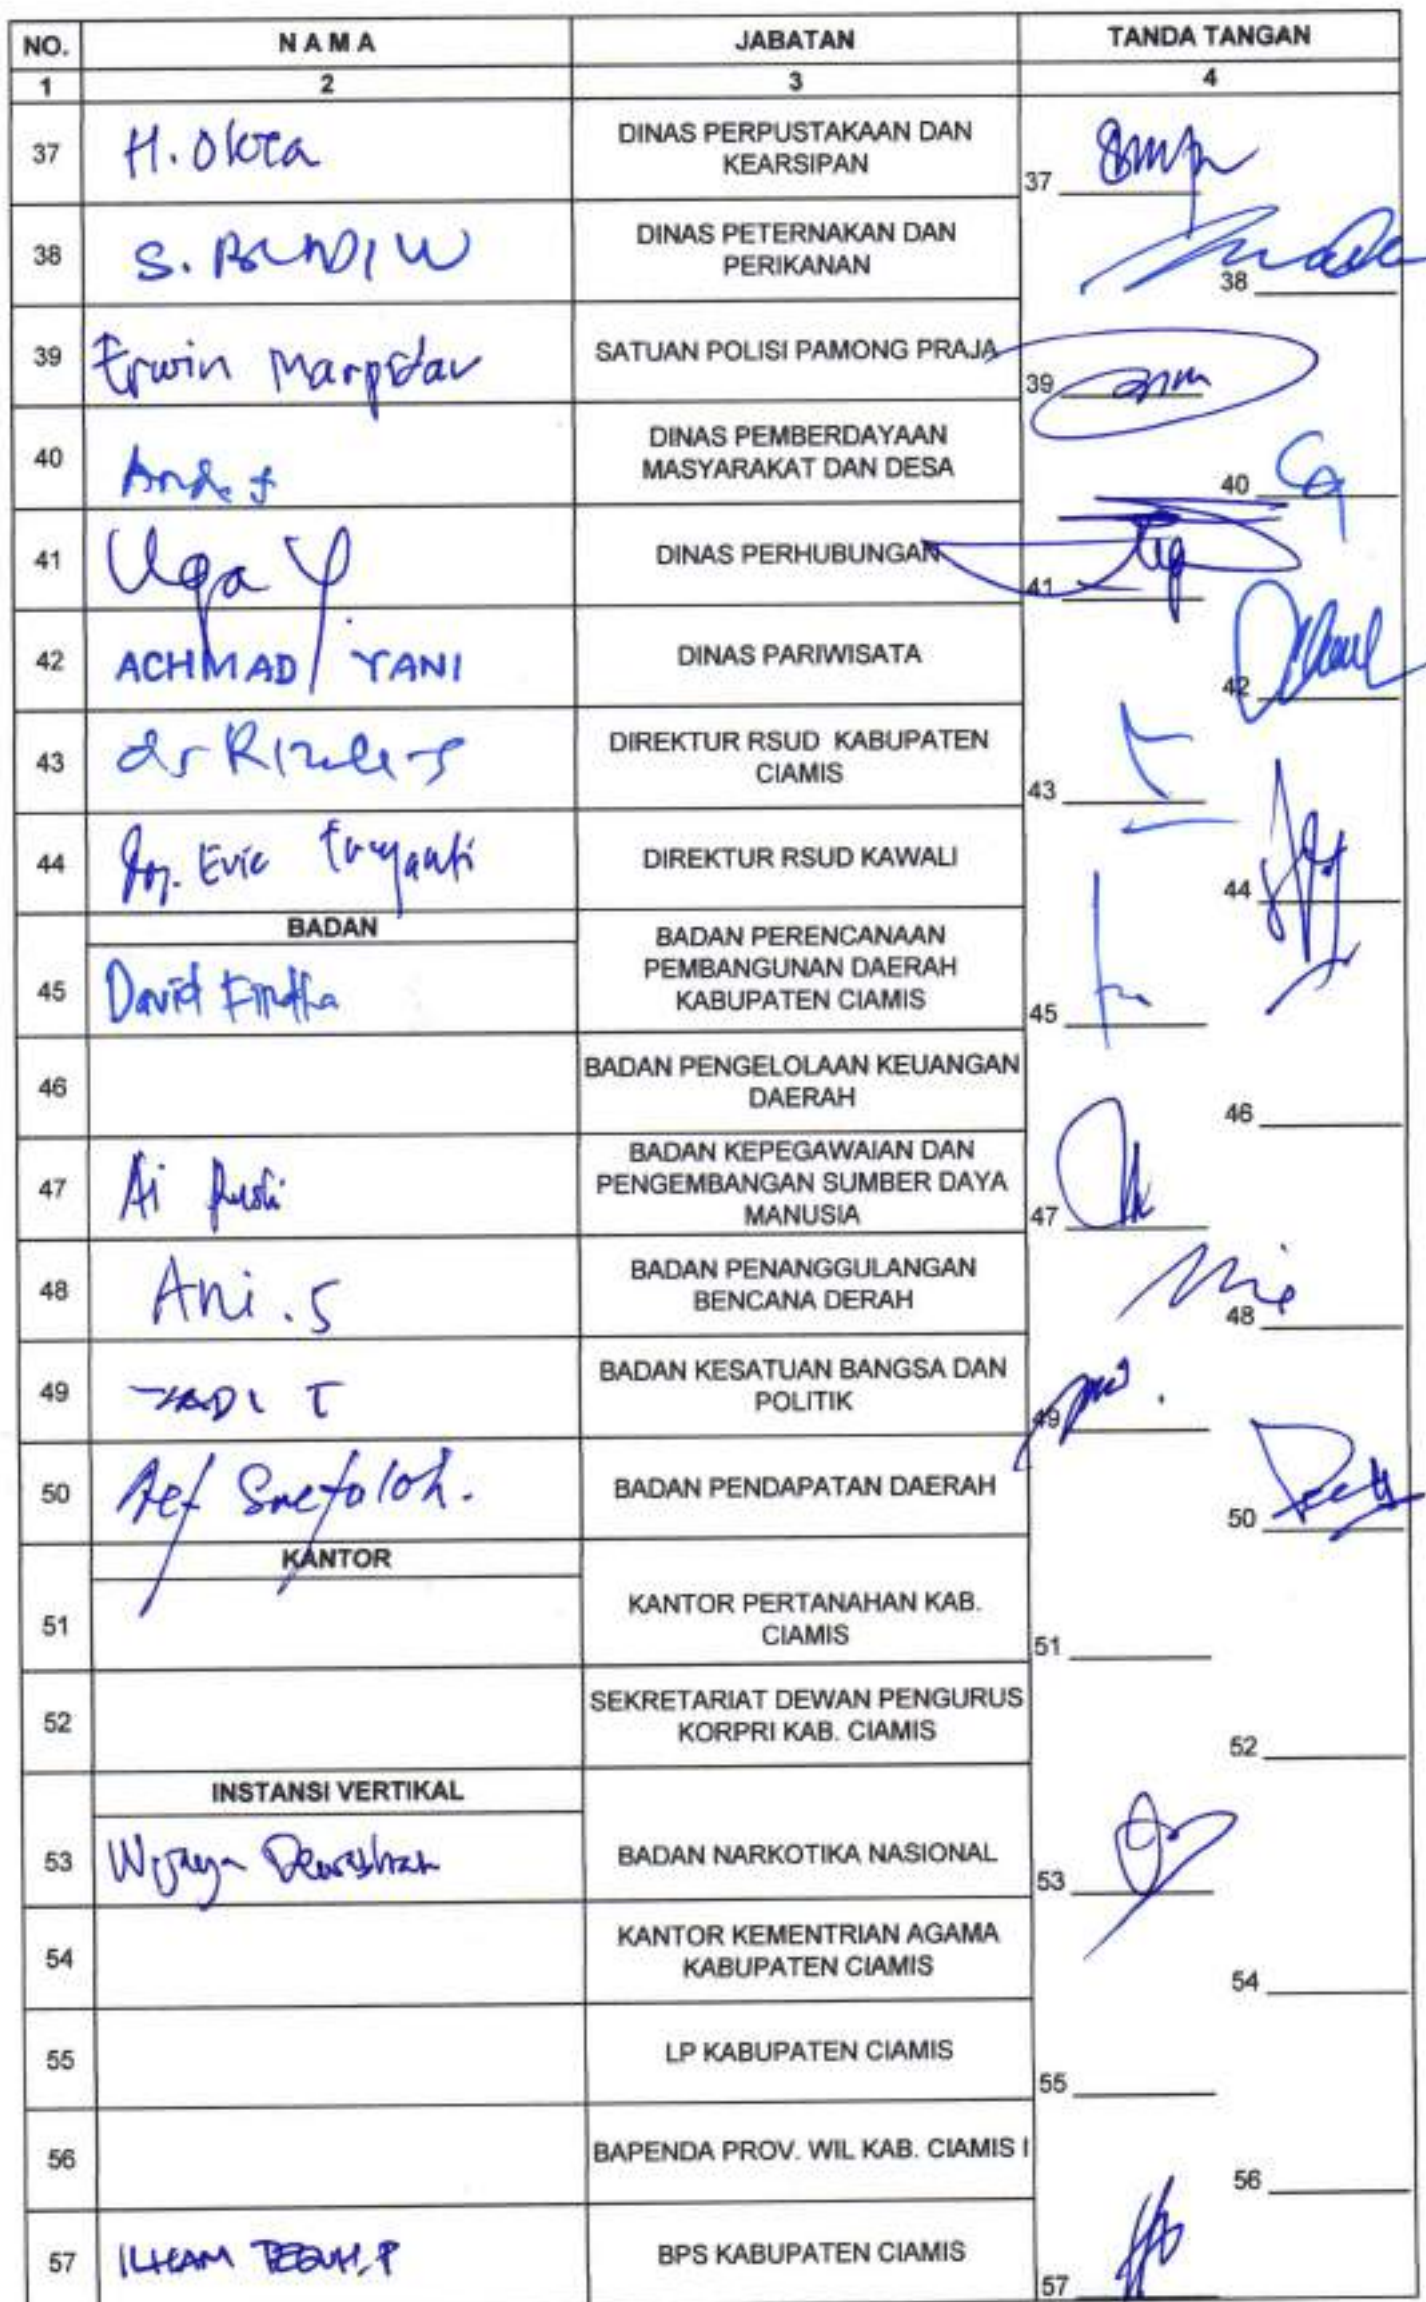 NO. NAMA JABATAN TANDA TANGAN
1 2 3 4
37 H. Okta DINAS PERPUSTAKAAN DAN
KEARSIPAN 37
38 S. BUDI W DINAS PETERNAKAN DAN
PERIKANAN 38
39 Erwin SATUAN POLISI PAMONG PRAJA 39
40 DINAS PEMBERDAYAAN
MASYARAKAT DAN DESA 40
41 Uga Y. DINAS PERHUBUNGAN 41
42 ACHMAD YANI DINAS PARIWISATA 42
43 dr DIREKTUR RSUD KABUPATEN
CIAMIS 43
44 Evie DIREKTUR RSUD KAWALI 44
BADAN
45 David BADAN PERENCANAAN
PEMBANGUNAN DAERAH
KABUPATEN CIAMIS 45
46 BADAN PENGELOLAAN KEUANGAN
DAERAH 46
47 Ai BADAN KEPEGAWAIAN DAN
PENGEMBANGAN SUMBER DAYA
MANUSIA 47
48 Ani. S BADAN PENANGGULANGAN
BENCANA DERAH 48
49 BADAN KESATUAN BANGSA DAN
POLITIK 49
50 Aef BADAN PENDAPATAN DAERAH 50
KANTOR
51 KANTOR PERTANAHAN KAB.
CIAMIS 51
52 SEKRETARIAT DEWAN PENGURUS
KORPRI KAB. CIAMIS 52
INSTANSI VERTIKAL
53 BADAN NARKOTIKA NASIONAL 53
54 KANTOR KEMENTRIAN AGAMA
KABUPATEN CIAMIS 54
55 LP KABUPATEN CIAMIS 55
56 BAPENDA PROV. WIL KAB. CIAMIS I 56
57 ILHAM TEGUH. P BPS KABUPATEN CIAMIS 57